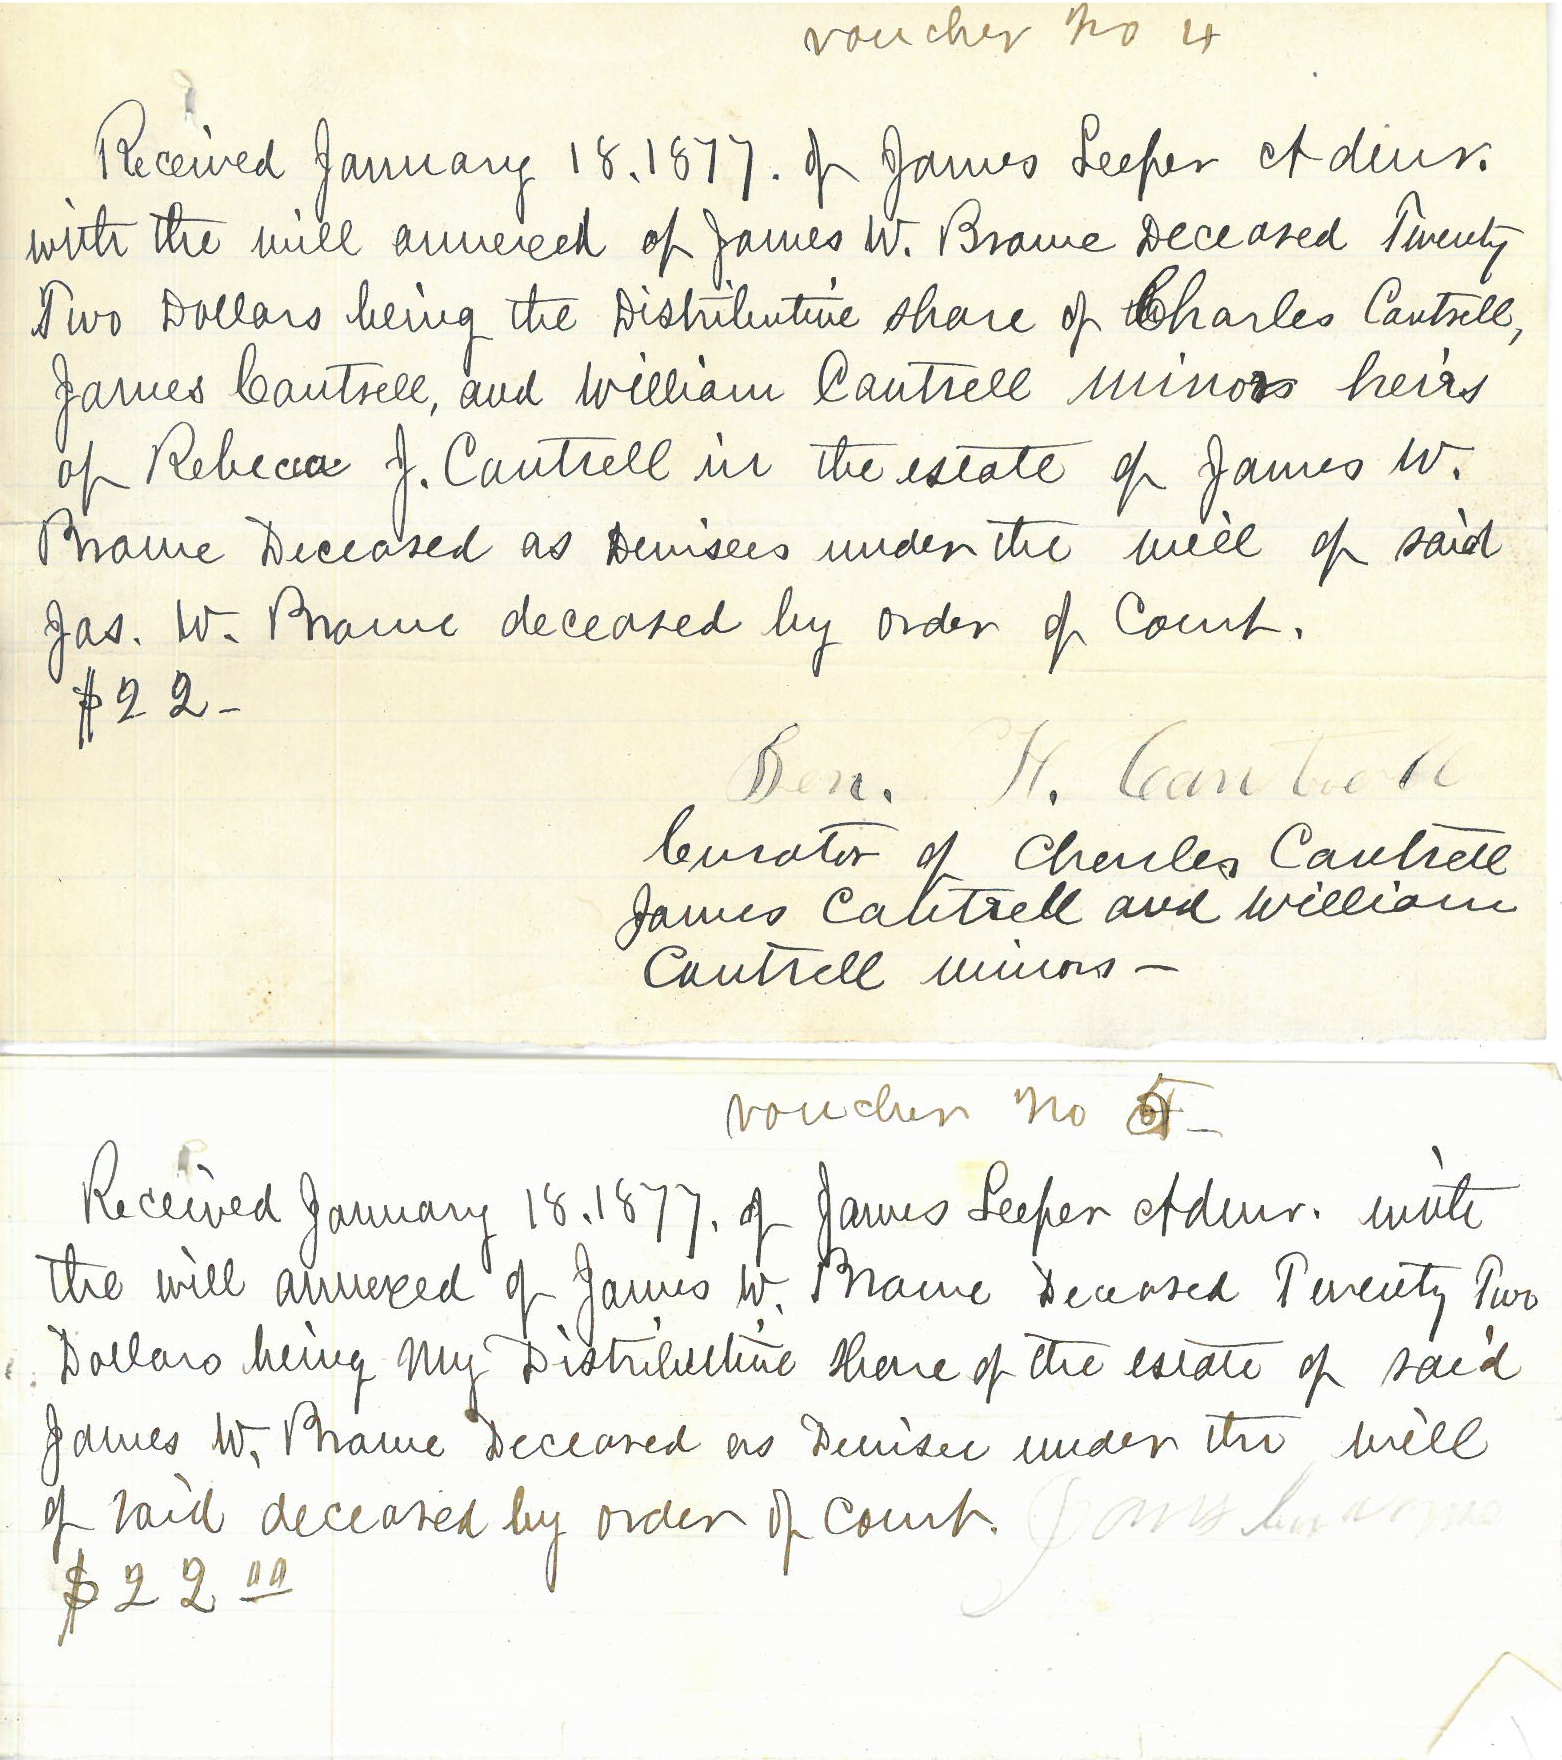 voucher No 4
Received January 18. 1877. of James Leeper Admr.
with the will annexed of James W. Brame Deceased Twenty
Two Dollars being the Distributive share of Charles Cantrell,
James Cantrell, and William Cantrell minors heirs
of Rebecca J. Cantrell in the estate of James W.
Brame Deceased as Devisees under the will of said
Jas. W. Brame deceased by order of Court.
$22-
Ben. H. Cantrell
Curator of Charles Cantrell
James Cantrell and William
Cantrell minors -
voucher No 5-
Received January 18. 1877. of James Leeper Admr. with
the will annexed of James W. Brame Deceased Twenty Two
Dollars being My Distributive Share of the estate of said
James W. Brame Deceased as Devisee under the will
of said deceased by order of Court.
$22 00